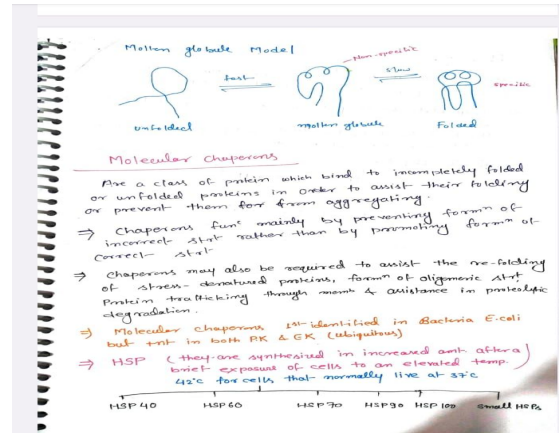 Molten globule Model
Non-specific
fast
slow
specific
unfolded
molten globule
Folded
Molecular Chaperons
Are a class of protein which bind to incompletely folded
or unfolded proteins in order to assist their folding
or prevent them for from aggregating.
⇒ Chaperons funcⁿ mainly by preventing formⁿ of
incorrect strt rather than by promoting formⁿ of
correct strt
⇒ Chaperons may also be required to assist the re-folding
of stress-denatured proteins, formⁿ of oligomeric strt
Protein trafficking through memb & assistance in proteolytic
degradation.
⇒ Molecular chaperons 1st identified in Bacteria E.coli
but tnt in both PK & EK (ubiquitous)
⇒ HSP (they are synthesized in increased amt after a
brief exposure of cells to an elevated temp.)
42°C for cells that normally live at 37°C
HSP 40 HSP 60 HSP 70 HSP 90 HSP 100 small HSPs